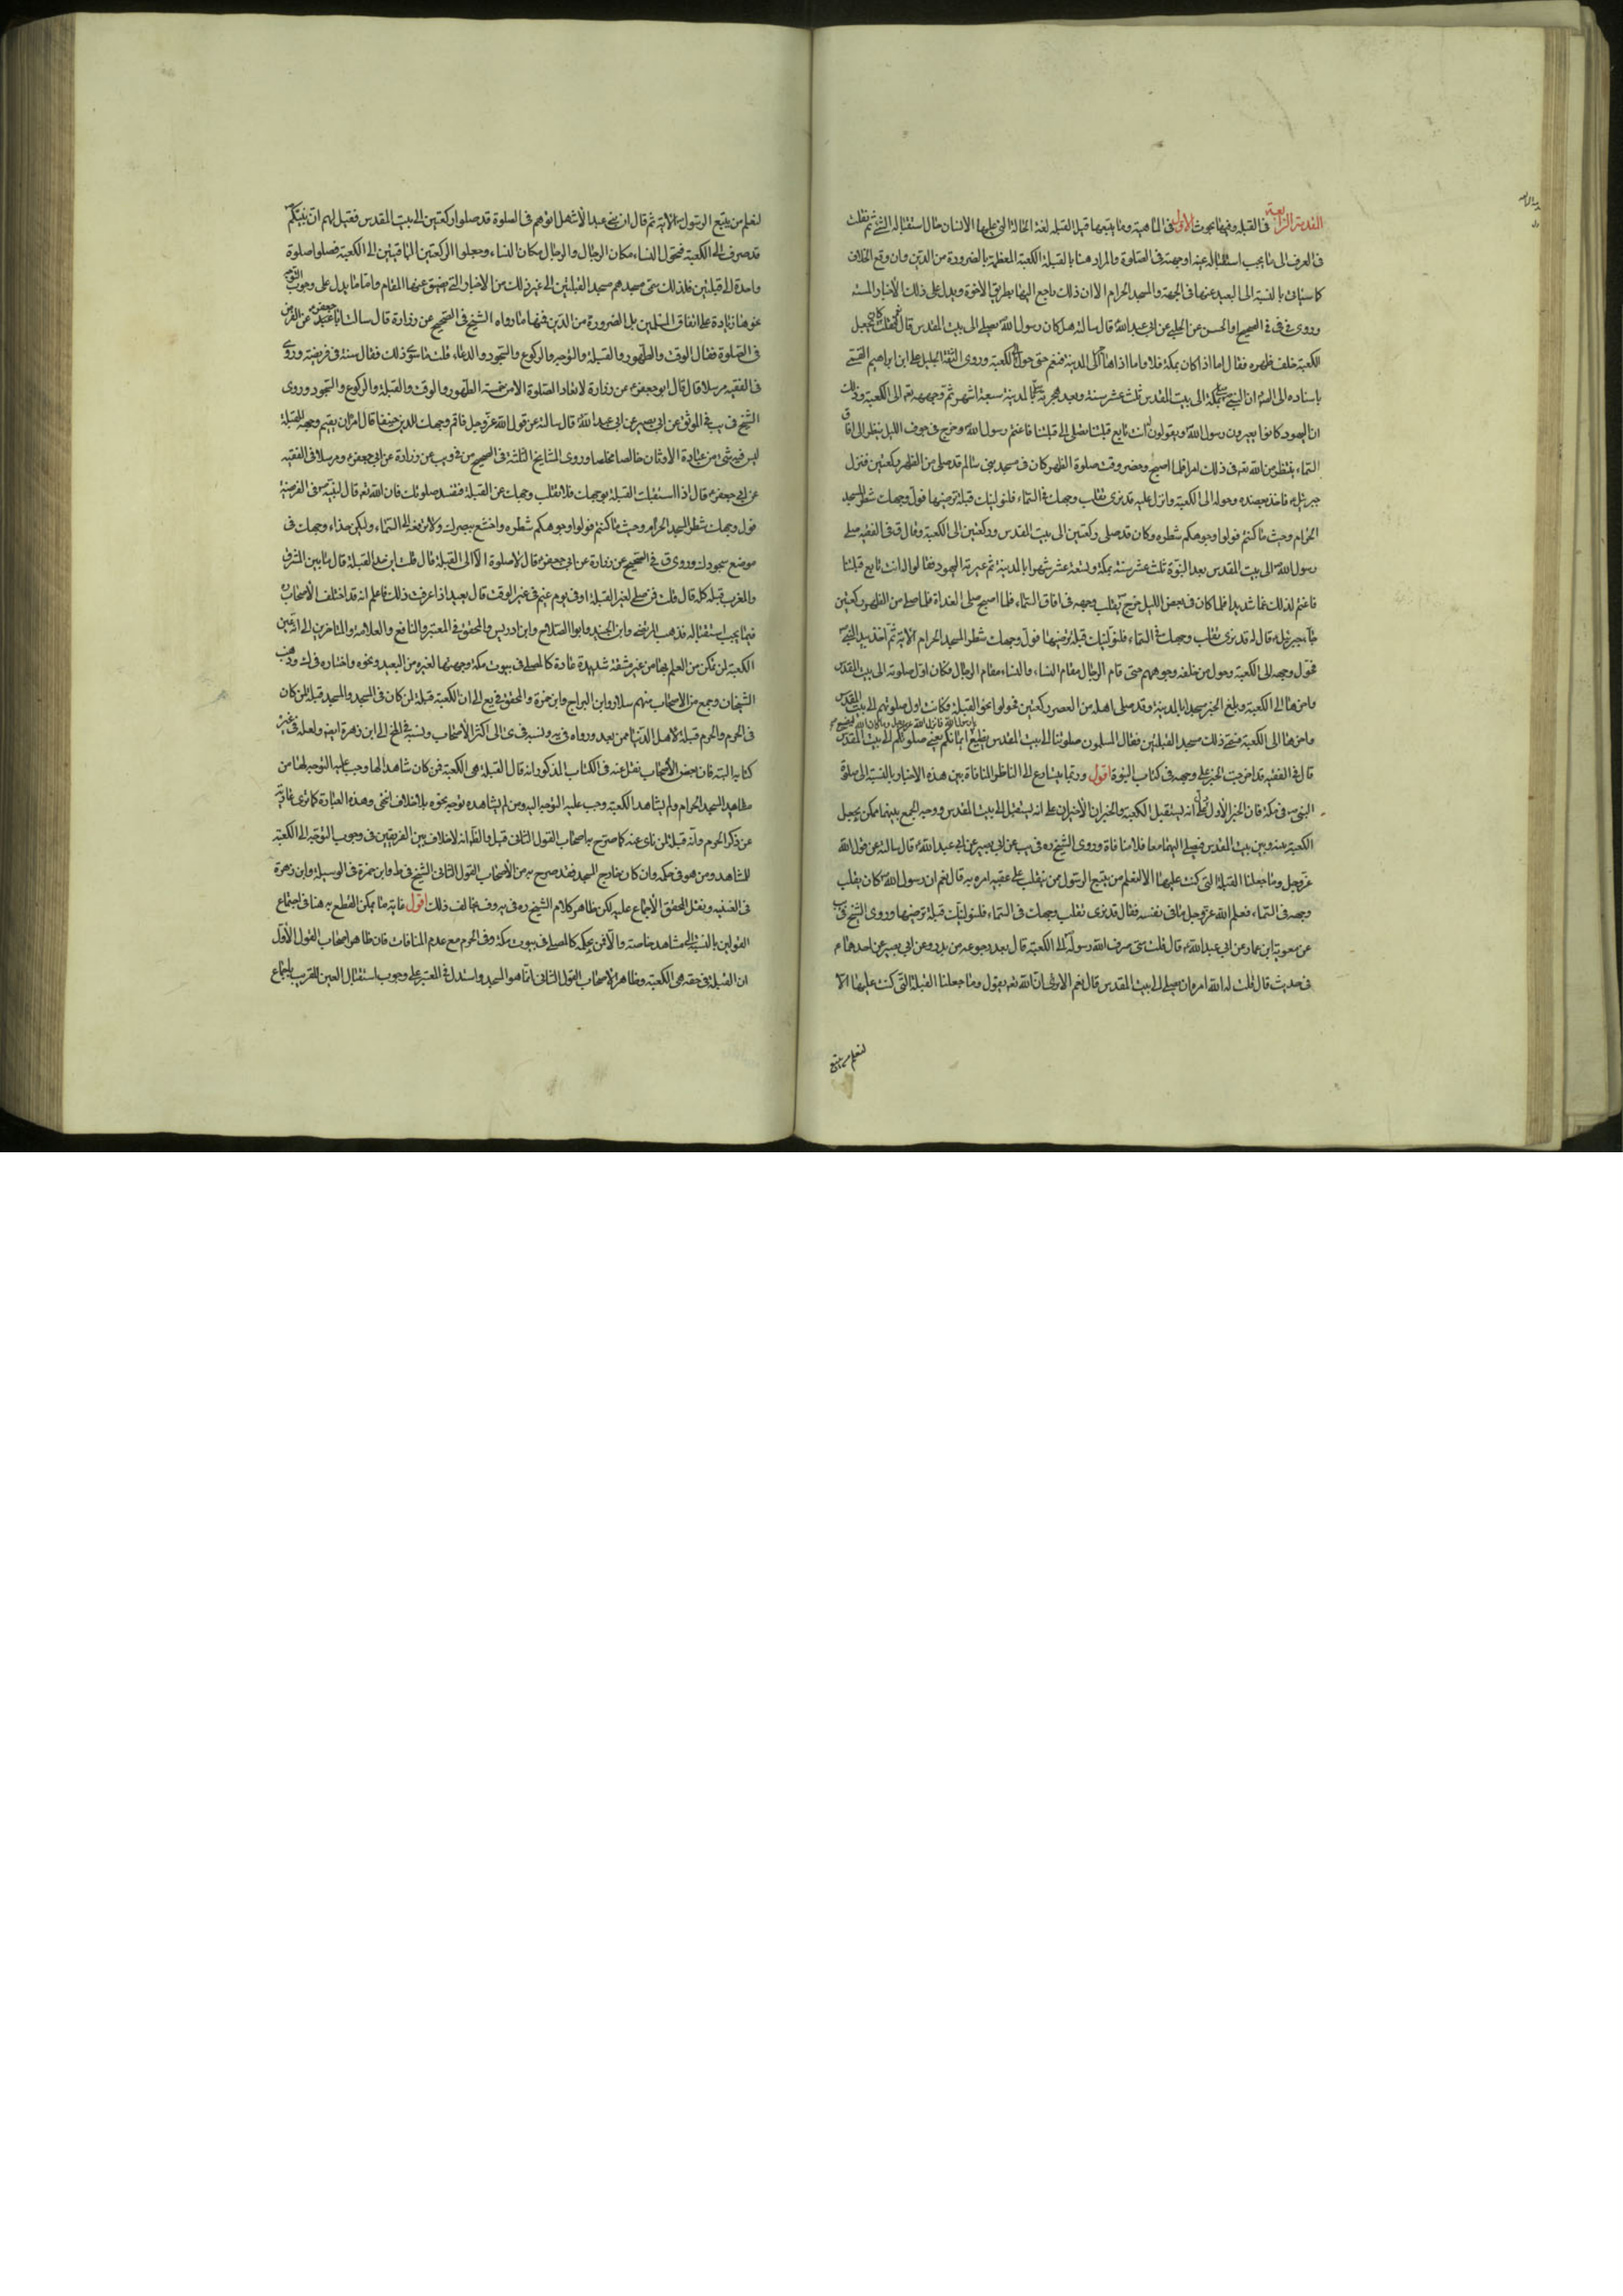 المقدمة الرابعة فى القبلة وفيها بحوث الاول فى الماهية وما يتبعها قيل القبلة لغة الحالة التى عليها الانسان حال استقباله الشئ ثم نقلت
فى العرف الى ما يجب استقباله عينه او جهته فى الصلوة والمراد هنا بالقبلة الكعبة المعظمة بالضرورة من الدين وان وقع الخلاف
كما سياتى بالنسبة الى البعيد عنها فى الجهة والمسجد الحرام الا ان ذلك راجع اليها بطريق الاخرة ويدل على ذلك الاخبار
وروى فى فى الصحيح او الحسن عن الحلبى عن ابى عبد الله ع قال سالته هل كان رسول الله ص يصلى الى بيت المقدس قال نعم فقلت كان يجعل
الكعبة خلف ظهره فقال اما اذا كان بمكة فلا واما اذا هاجر الى المدينة فنعم حتى حول الى الكعبة وروى الثقة الجليل على ابن ابراهيم القمى
باسناده الى الصادق ع ان النبى ص صلى بمكة الى بيت المقدس ثلث عشر سنة وبعد هجرته ص صلى بالمدينة سبعة اشهر ثم وجهه الله تعه الى الكعبة وذلك
ان اليهود كانوا يعيرون رسول الله ص ويقولون له انت تابع قبلتنا تصلى الى قبلتنا فاغتم رسول الله ص وخرج فى جوف الليل ينظر الى افاق
السماء ينتظر من الله تعه فى ذلك امرا فلما اصبح وحضر وقت صلوة الظهر كان فى مسجد بنى سالم قد صلى من الظهر ركعتين فنزل
جبرئيل ع فاخذ بعضده وحوله الى الكعبة وانزل عليه قد نرى تقلب وجهك فى السماء فلنولينك قبلة ترضيها فول وجهك شطر المسجد
الحرام وحيث ما كنتم فولوا وجوهكم شطره وكان قد صلى ركعتين الى بيت المقدس وركعتين الى الكعبة وقال ق فى الفقيه صلى
رسول الله ص الى بيت المقدس بعد النبوة ثلث عشر سنة بمكة وتسعة عشر شهرا بالمدينة ثم عيرته اليهود فقالوا له انت تابع قبلتنا
فاغتم لذلك غما شديدا فلما كان فى بعض الليل خرج ص يقلب وجهه فى افاق السماء فلما اصبح صلى الغداة فلما صلى من الظهر ركعتين
جاء جبرئيل ع قال له قد نرى تقلب وجهك فى السماء فلنولينك قبلة ترضيها فول وجهك شطر المسجد الحرام الاية ثم اخذ بيد النبى ص
فحول وجهه الى الكعبة وحول من خلفه وجوههم حتى قام الرجال مقام النساء والنساء مقام الرجال فكان اول صلوته الى بيت المقدس
واخرها الى الكعبة وبلغ الخبر مسجدا بالمدينة وقد صلى اهله من العصر ركعتين فحولوا نحو القبلة فكانت اول صلوتهم الى بيت المقدس
واخرها الى الكعبة فسمى ذلك مسجد القبلتين فقال المسلمون صلوتنا الى بيت المقدس تضيع يا رسول الله فانزل الله عز وجل وما كان الله ليضيع ايمانكم يعنى صلوتكم الى بيت المقدس
قال فى الفقيه قد اخرجت الخبر على وجهه فى كتاب النبوة اقول وربما يتسارع الى الناظر المنافاة بين هذه الاخبار بالنسبة الى صلوة
النبى ص فى مكة فان الخبر الاول يدل على انه يستقبل الكعبة والخبران الاخيران على انه يستقبل الى بيت المقدس ووجه الجمع بينهما ممكن بجعل
الكعبة بينه وبين بيت المقدس فيصلى اليهما معا فلا منافاة وروى الشيخ ره فى يب عن ابى بصير عن ابى عبد الله ع قال سالته عن قول الله
عز وجل وما جعلنا القبلة التى كنت عليها الا لنعلم من يتبع الرسول ممن ينقلب على عقبيه امره به قال نعم ان رسول الله ص كان يقلب
وجهه فى السماء فعلم الله عز وجل ما فى نفسه فقال قد نرى تقلب وجهك فى السماء فلنولينك قبلة ترضيها وروى الشيخ فى يب
عن معوية ابن عمار عن ابى عبد الله ع قال قلت متى صرف الله رسوله ص الى الكعبة قال بعد رجوعه من بدر وعن ابى بصير عن احدهما ع
فى حديث قال قلت له الله امره ان يصلى الى بيت المقدس قال نعم الا ترى ان الله تعه يقول وما جعلنا القبلة التى كنت عليها الا
لنعلم من يتبع
لنعلم من يتبع الرسول الاية ثم قال ان بنى عبد الاشهل اتوهم فى الصلوة قد صلوا ركعتين الى بيت المقدس فقيل لهم ان نبيكم
قد صرف الى الكعبة فتحول النساء مكان الرجال والرجال مكان النساء وجعلوا الركعتين الباقيتين الى الكعبة فصلوا صلوة
واحدة الى قبلتين فلذلك سمى مسجدهم مسجد القبلتين الى غير ذلك من الاخبار التى يضيق عنها المقام واما ما يدل على وجوب التوجه
نحوها زيادة على اتفاق المسلمين بل الضرورة من الدين فمنها ما رواه الشيخ فى الصحيح عن زرارة قال سالت ابا جعفر ع عن الفرض
فى الصلوة فقال الوقت والطهور والقبلة والتوجه والركوع والسجود والدعاء قلت ما سوى ذلك فقال سنة فى فريضة وروى
فى الفقيه مرسلا قال قال ابو جعفر ع عن زرارة لا تعاد الصلوة الا من خمسة الطهور والوقت والقبلة والركوع والسجود وروى
الشيخ فى يب فى الموثق عن ابى بصير عن ابى عبد الله ع قال سالته عن قول الله عز وجل فاقم وجهك للدين حنيفا قال امر ان يقيم وجهه للقبلة
ليس فيه شئ من عبادة الاوثان خالصا مخلصا وروى المشايخ الثلثة فى الصحيح عن زرارة عن ابى جعفر ع ومرسلا فى الفقيه
عن ابى جعفر ع قال اذا استقبلت القبلة بوجهك فلا تقلب وجهك عن القبلة فتفسد صلوتك فان الله تعه قال لنبيه ص فى الفريضة
فول وجهك شطر المسجد الحرام وحيث ما كنتم فولوا وجوهكم شطره واخشع ببصرك ولا ترفعه الى السماء وليكن حذاء وجهك فى
موضع سجودك وروى ق فى الصحيح عن زرارة عن ابى جعفر ع قال لا صلوة الا الى القبلة قال قلت اين حد القبلة قال ما بين المشرق
والمغرب قبلة كله قال قلت فمن صلى لغير القبلة او فى يوم غيم فى غير الوقت قال يعيد اذا عرفت ذلك فاعلم انه قد اختلف الاصحاب
فيما يجب استقباله فذهب المرتضى وابن الجنيد وابو الصلاح وابن ادريس والمحقق فى المعتبر والنافع والعلامة والمتاخرين الى انه عين
الكعبة لمن تمكن من العلم بها من غير مشقة شديدة عادة كالمصلى فى بيوت مكة وجهتها لغيره من البعيد ونحوه وذهب
الشيخان وجمع من الاصحاب منهم سلار وابن البراج وابن حمزة والمحقق فى يع الى ان الكعبة قبلة لمن كان فى المسجد والمسجد قبلة لمن كان
فى الحرم والحرم قبلة لاهل الدنيا ممن بعد ونسبه فى كرى الى اكثر الاصحاب الى ابن زهرة ايضا ولعله فى غير
كتابه البتة فان بعض الاصحاب نقل عنه فى الكتاب المذكور انه قال القبلة هى الكعبة فمن كان شاهدا لها وجب عليه التوجه اليها ومن
شاهد المسجد الحرام ولم يشاهد الكعبة وجب عليه التوجه اليه ومن لم يشاهده توجه نحوه بلا خلاف انتهى وهذه العبارة كما ترى خالية
عن ذكر الحرم وانه قبلة لمن ناى عنه كما صرح به اصحاب القول الثانى قيل والظاهر انه لا خلاف بين الفريقين فى وجوب التوجه الى الكعبة
للمشاهد ومن هو فى حكمه وان كان خارج المسجد فقد صرح به من الاصحاب القول الثانى الشيخ فى ط وابن حمزة فى الوسيلة وابن زهرة
فى الغنية ونقل المحقق الاجماع عليه لكن ظاهر كلام الشيخ ره فى يه وف يخالف ذلك اقول غاية ما يمكن القطع به هنا فى اجتماع
القولين بالنسبة الى مشاهد خاصة والا فمن بحكمه كالمصلى فى بيوت مكة وفى الحرم مع عدم المنافات فان ظاهر اصحاب القول الاول
ان القبلة فى حقه هى الكعبة وظاهر اصحاب القول الثانى انما هو المسجد واستدل فى المعتبر على وجوب استقبال العين للقريب باجماع